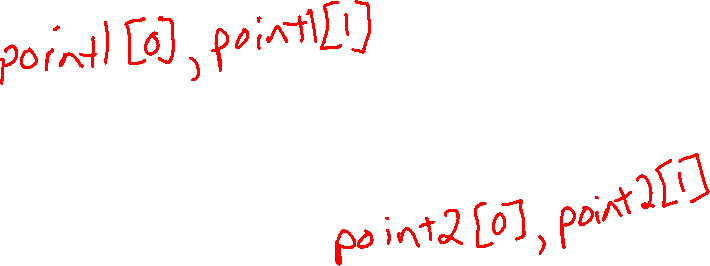 point1[0], point1[1]
point2[0], point2[1]